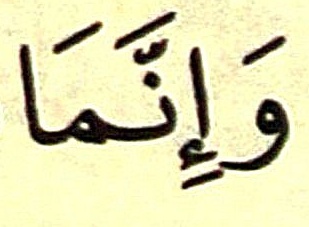 وَإِنَّمَا